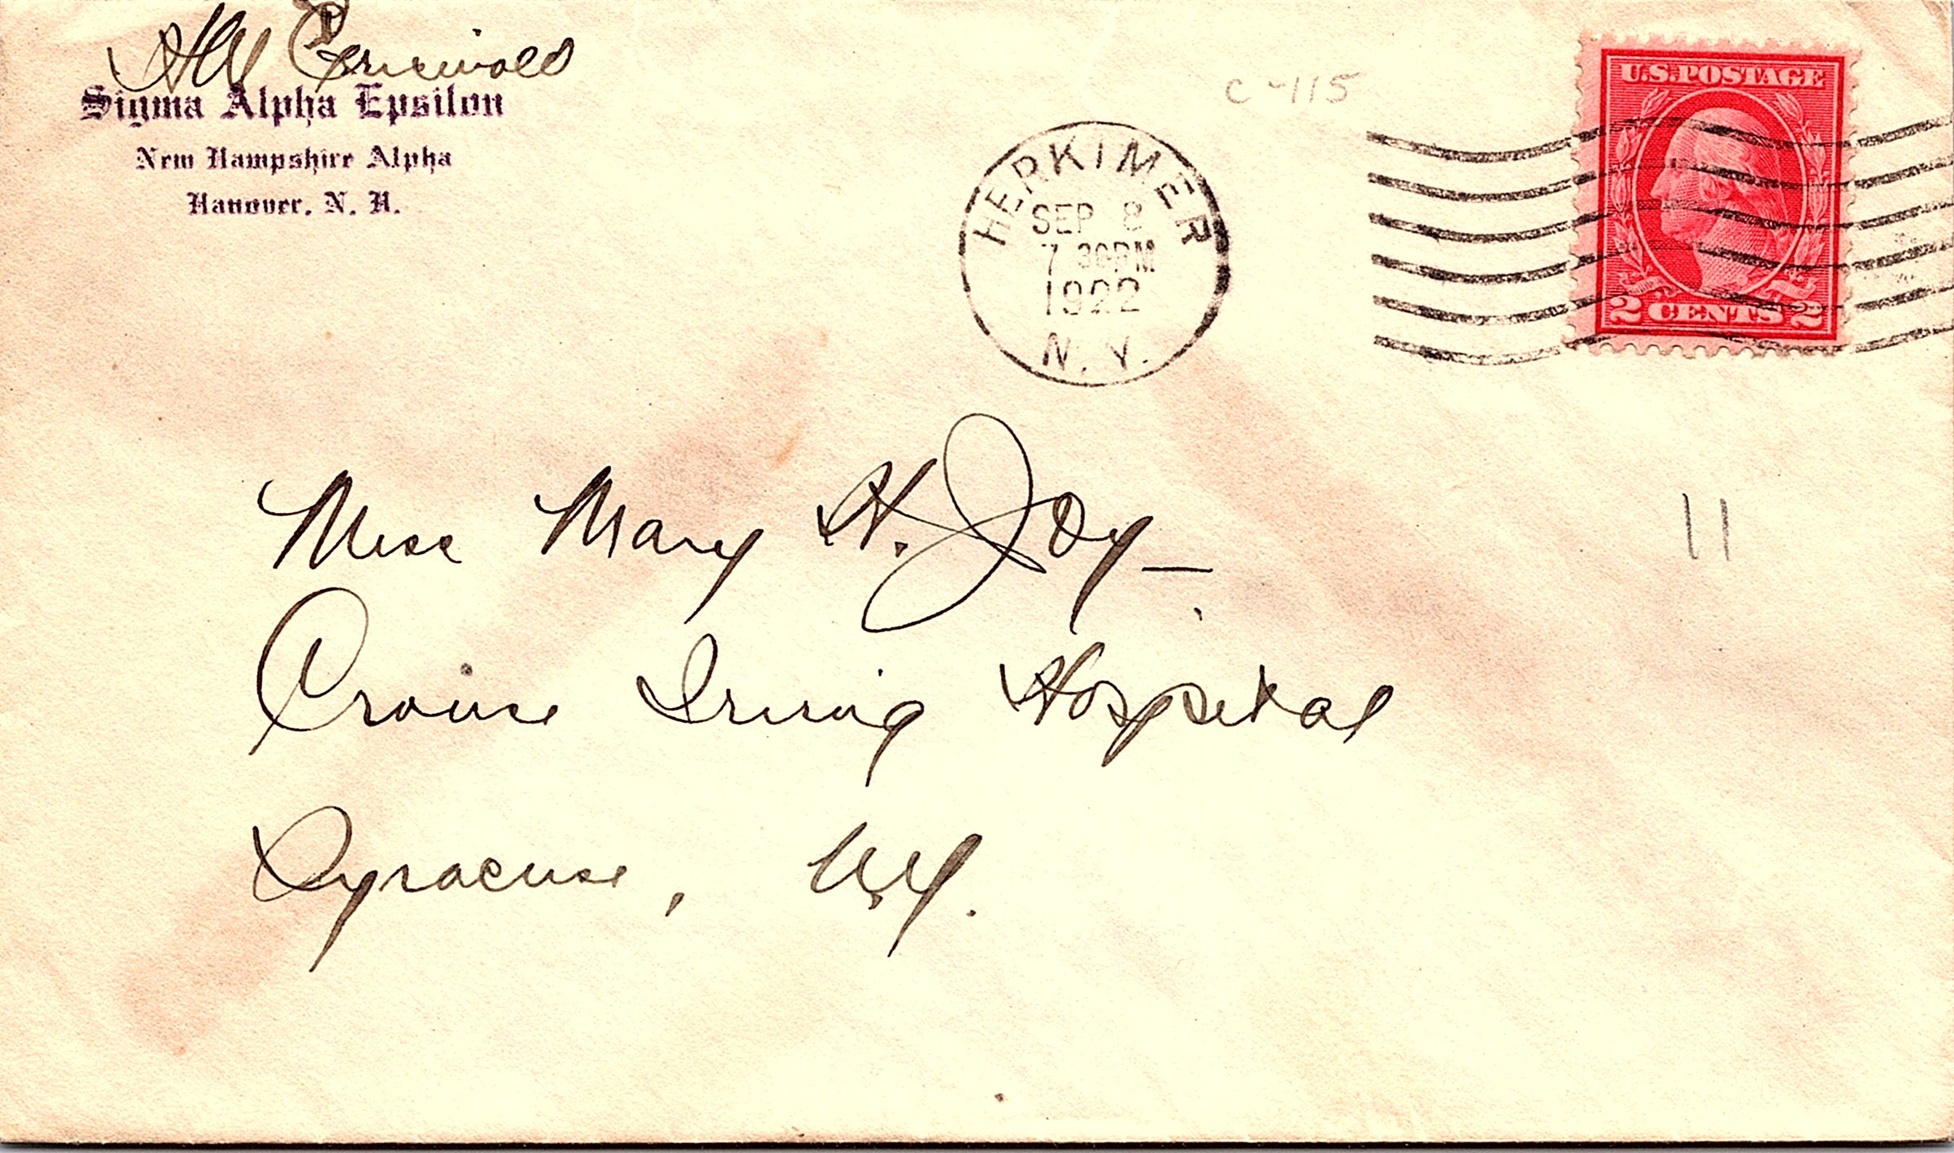 HW Griswold
Sigma Alpha Epsilon
New Hampshire Alpha
Hanover, N. H.
C-115
HERKIMER
SEP 8
7 30PM
1922
N. Y.
U.S. POSTAGE
2 CENTS 2
Miss Mary H. Joy –
11
Crouse Irving Hospital
Syracuse, N.Y.